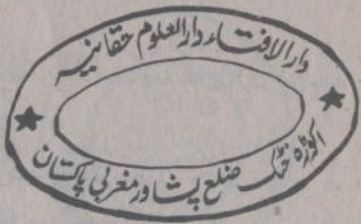 دارالافتاء دارالعلوم حقانیہ
اکوڑہ خٹک ضلع پشاور مغربی پاکستان